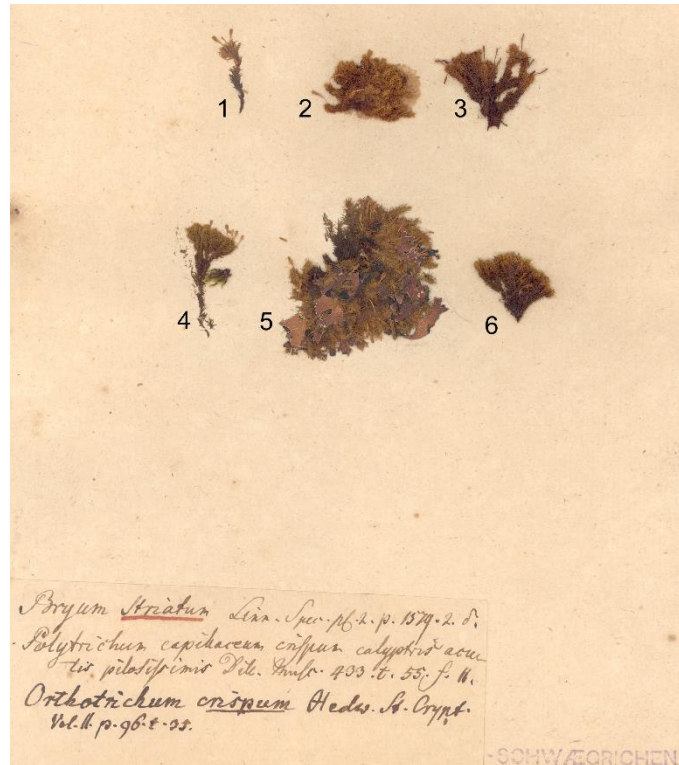 1
2
3
4
5
6
Bryum Striatum Linn. Spec. pl. 2. p. 1579. 2. δ.
- Polytrichum capillaceum crispum calyptris acu
tis pilosissimis Dill. Musc. 433. t. 55. f. 11.
Orthotrichum crispum Hedw. St. Crypt.
Vol. II. p. 96. t. 35.
-SCHWÆGRICHEN